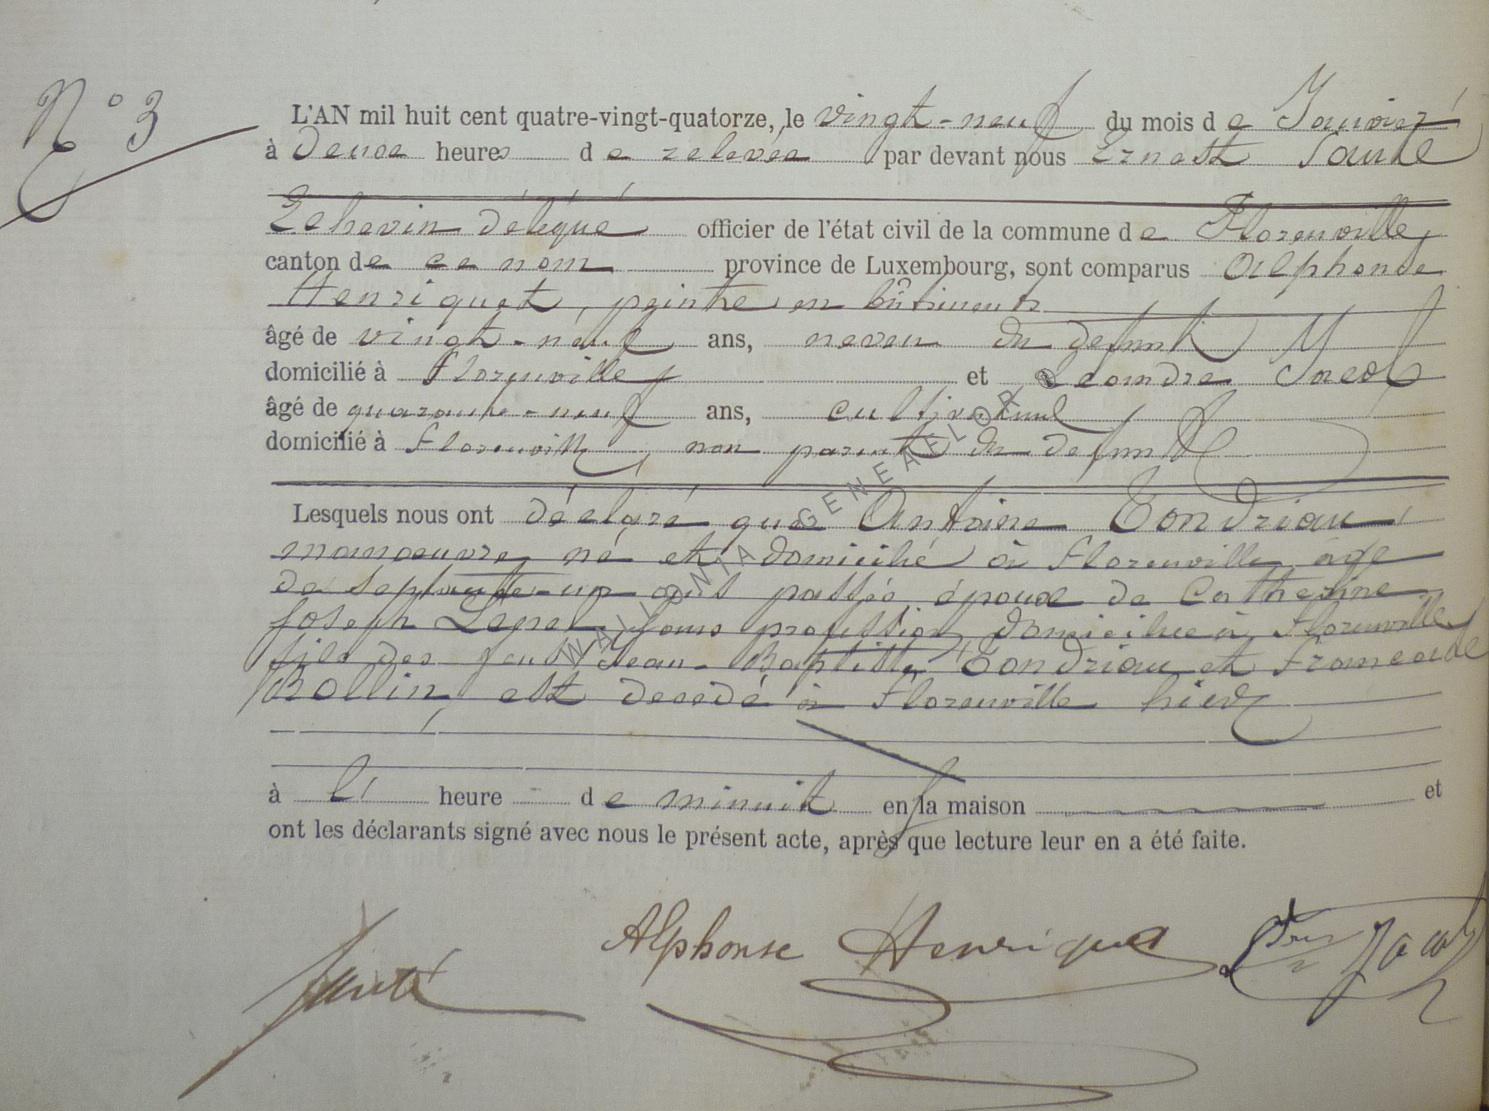 N° 3
L'AN mil huit cent quatre-vingt-quatorze, le vingt-neuf du mois de Janvier
à deux heures de relevée par devant nous Ernest Santé
Echevin délégué officier de l'état civil de la commune de Florenville
canton de ce nom province de Luxembourg, sont comparus Alphonse
Henriquet, peintre en bâtiments
âgé de vingt-neuf ans, neveu du defunt
domicilié à Florenville et Leandre
âgé de quarante-neuf ans, cultivateur
domicilié à Florenville, non parent du defunt
Lesquels nous ont déclaré que Antoine Tondriau,
manoeuvre né et domicilié à Florenville, âgé
de septante-un ans passés époux de Catherine
Joseph sans profession, domiciliée à Florenville
fils des feus Jean-Baptiste Tondriau et Francoise
Rollin est decedé à Florenville hier
à l' heure de minuit en sa maison et
ont les déclarants signé avec nous le présent acte, après que lecture leur en a été faite.
WALLONIA GENEAFLOR
Santé Alphonse Henriquet